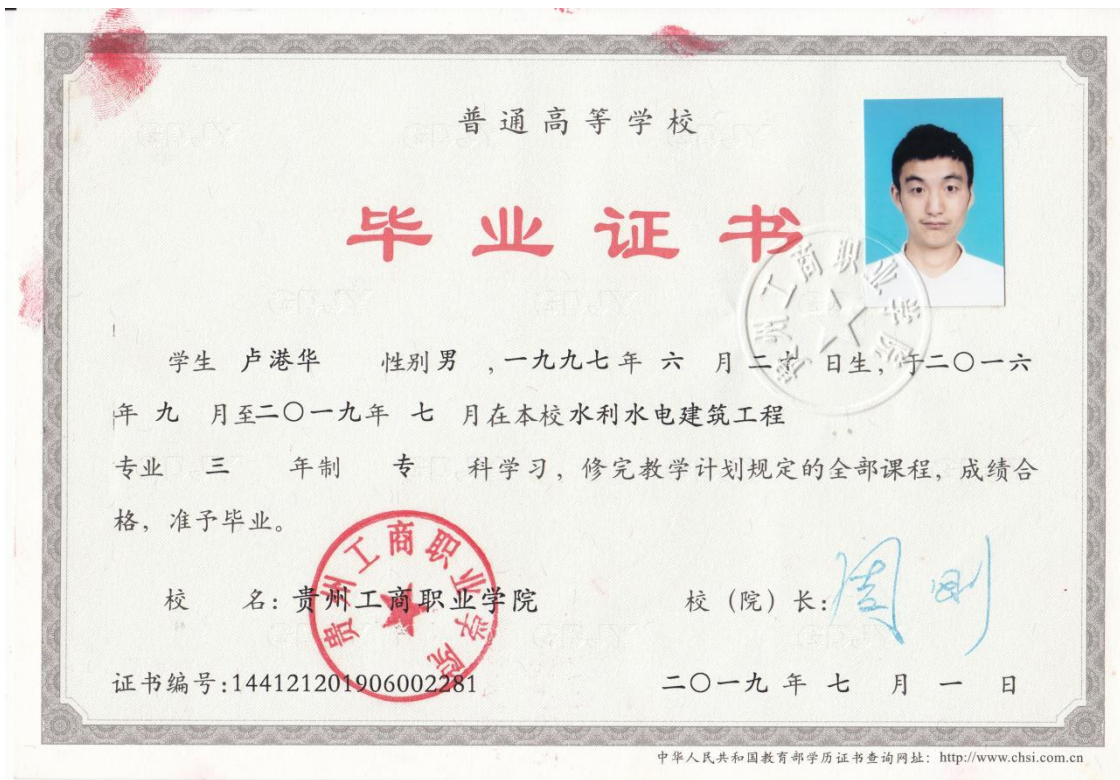 普通高等学校
毕业证书
学生 卢港华 性别 男 ，一九九七年 六 月 二 日生，于二〇一六
年 九 月至二〇一九年 七 月在本校水利水电建筑工程
专业 三 年制 专 科学习，修完教学计划规定的全部课程，成绩合
格，准予毕业。
校 名：贵州工商职业学院
校（院）长：周刚
贵州工商职业学院
贵州工商职业学院
证书编号：144121201906002281
二〇一九 年 七 月 一 日
中华人民共和国教育部学历证书查询网址：http://www.chsi.com.cn